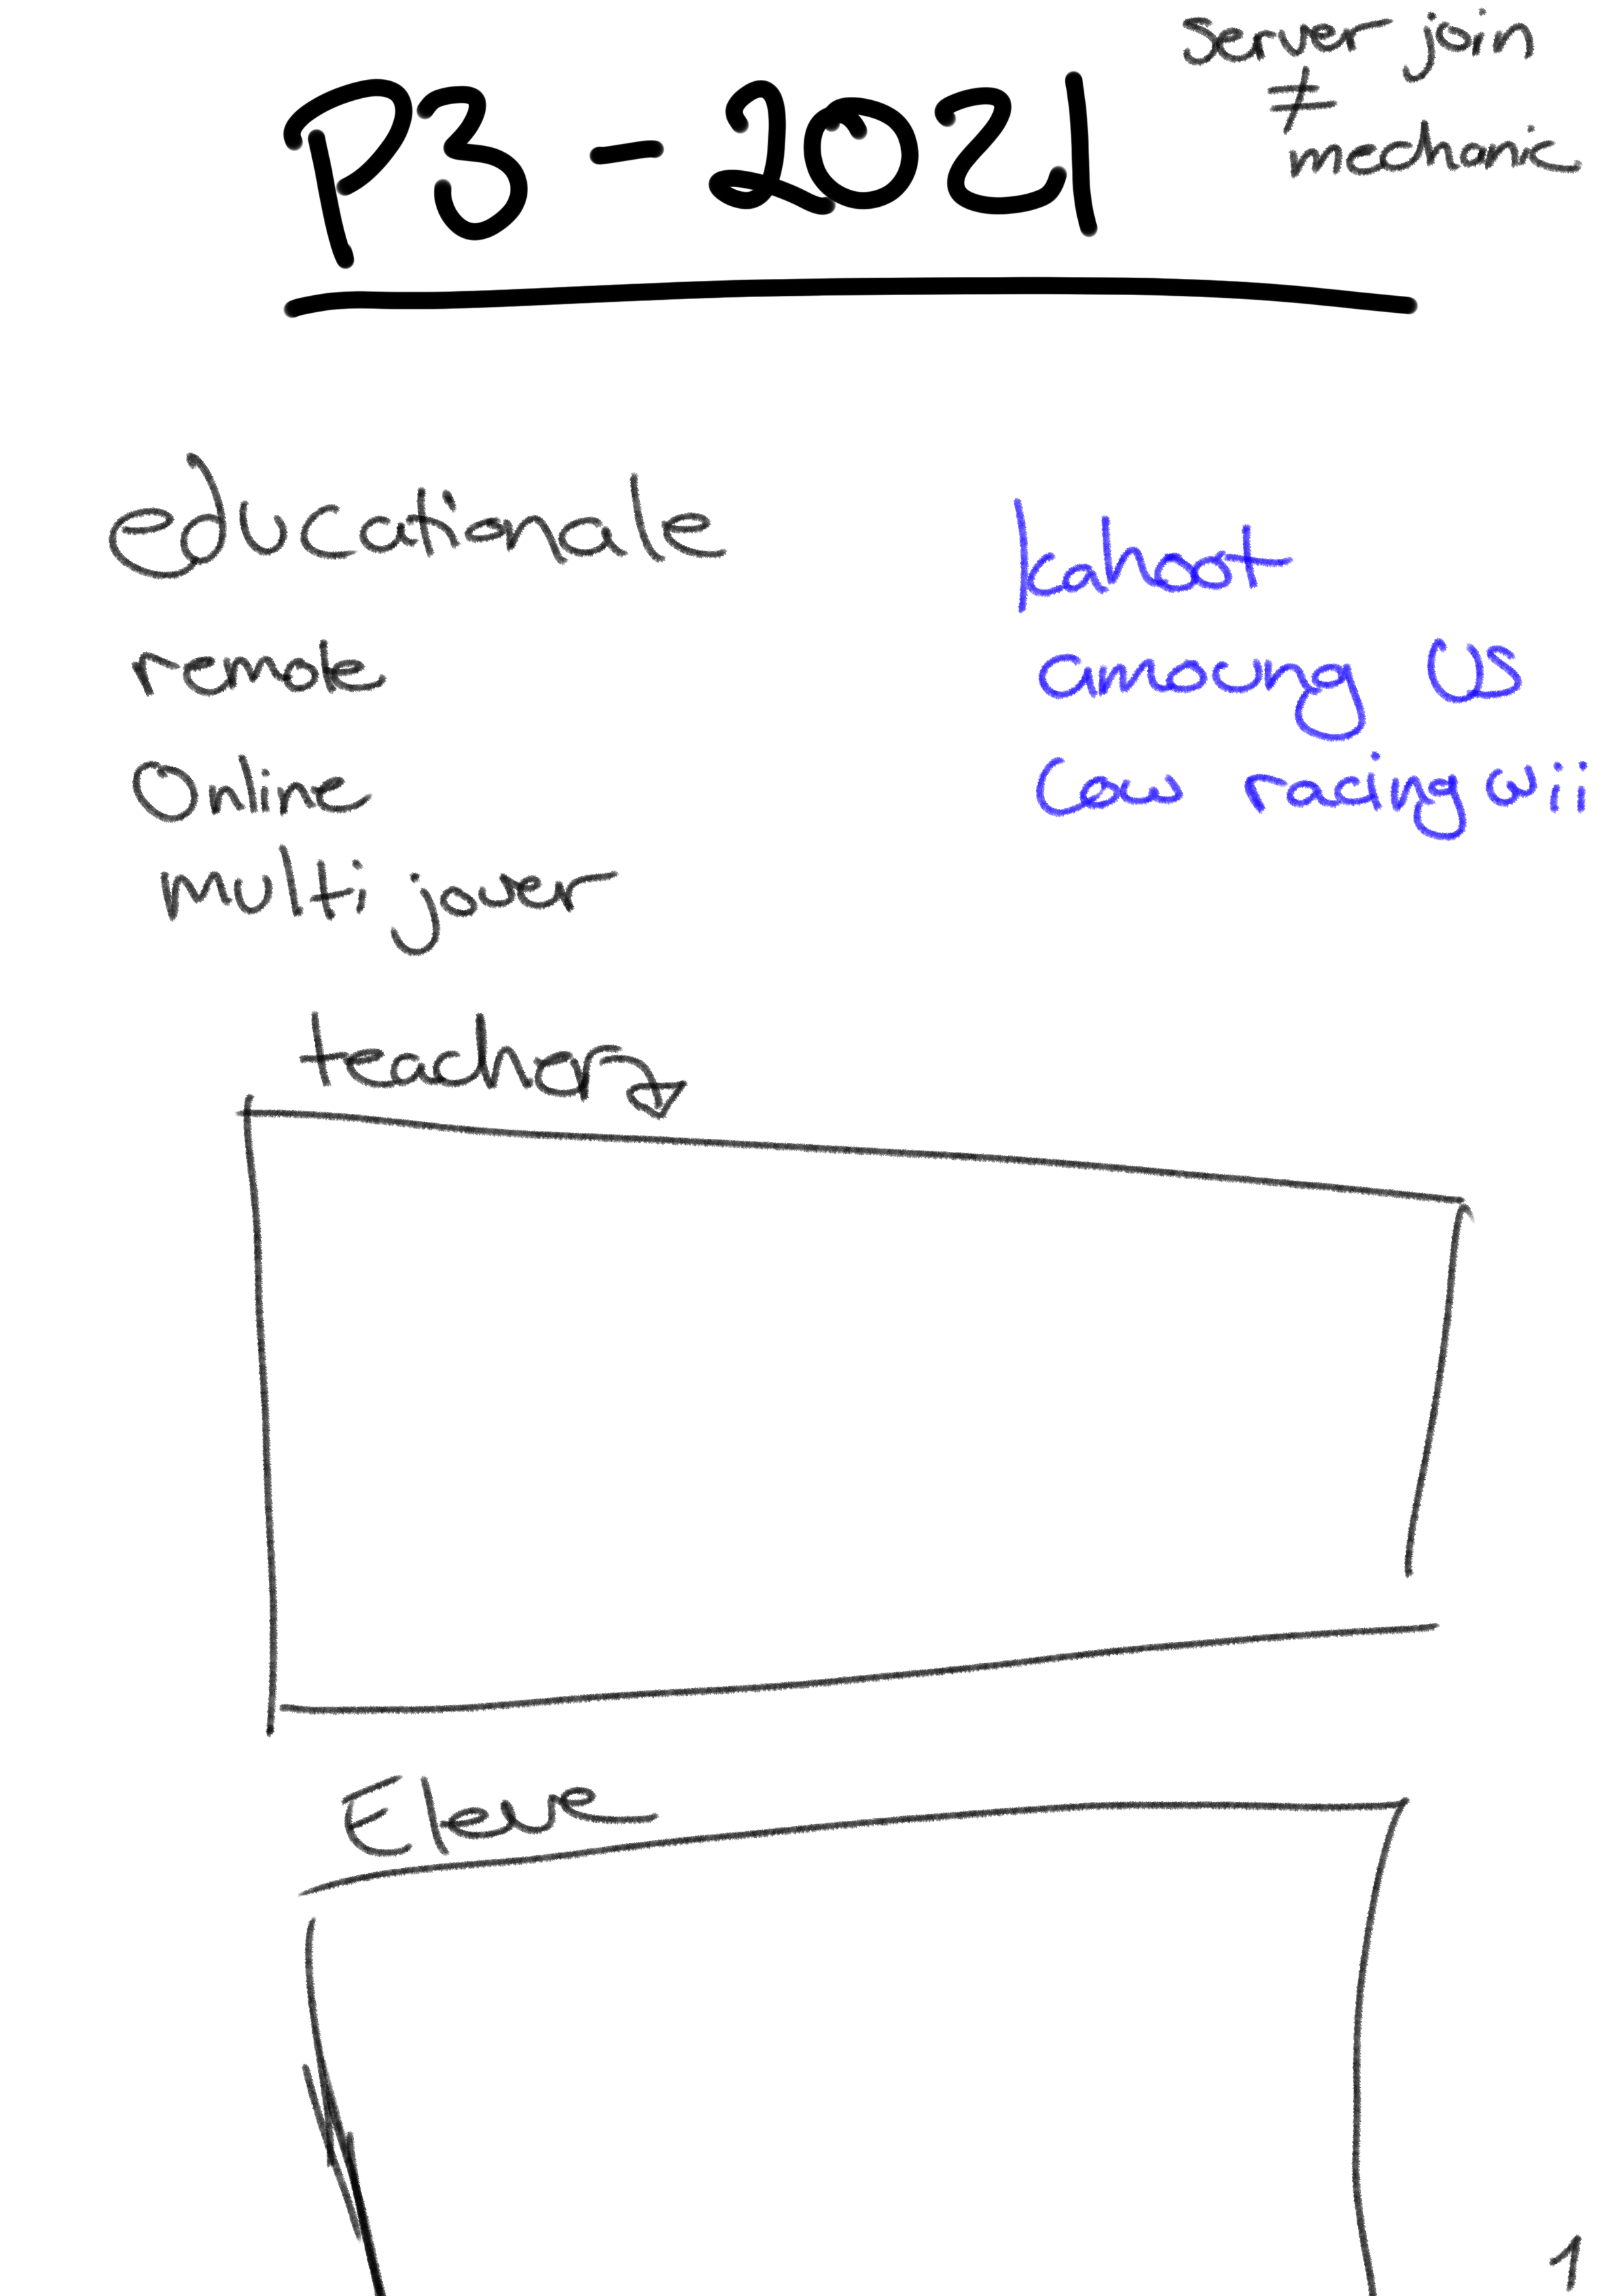 server join
≠
mechanic
P3 - 2021
educationale
remote
Online
multi jouer
kahoot
amoung US
Cow racing wii
teacher
Eleve
1